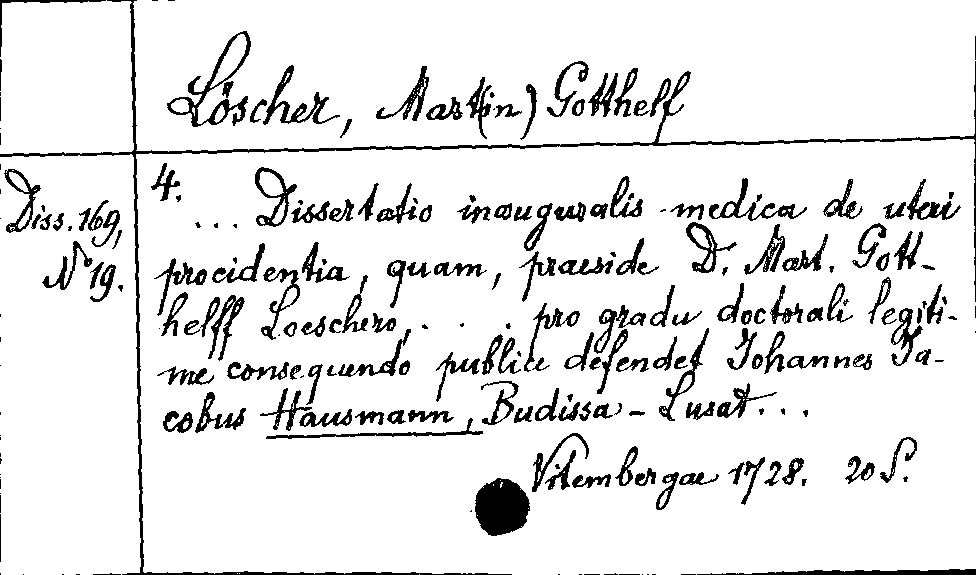 Löscher, Mart(in) Gotthelf
Diss. 169,
No 19.
4.
... Dissertatio inauguralis medica de uteri
procidentia, quam, praeside D. Mart. Gott-
helff Loeschero, . . . pro gradu doctorali legiti-
me consequendo publice defendet Johannes Ja-
cobus Hausmann, Budissa - Lusat...
Vitembergae 1728. 20 S.